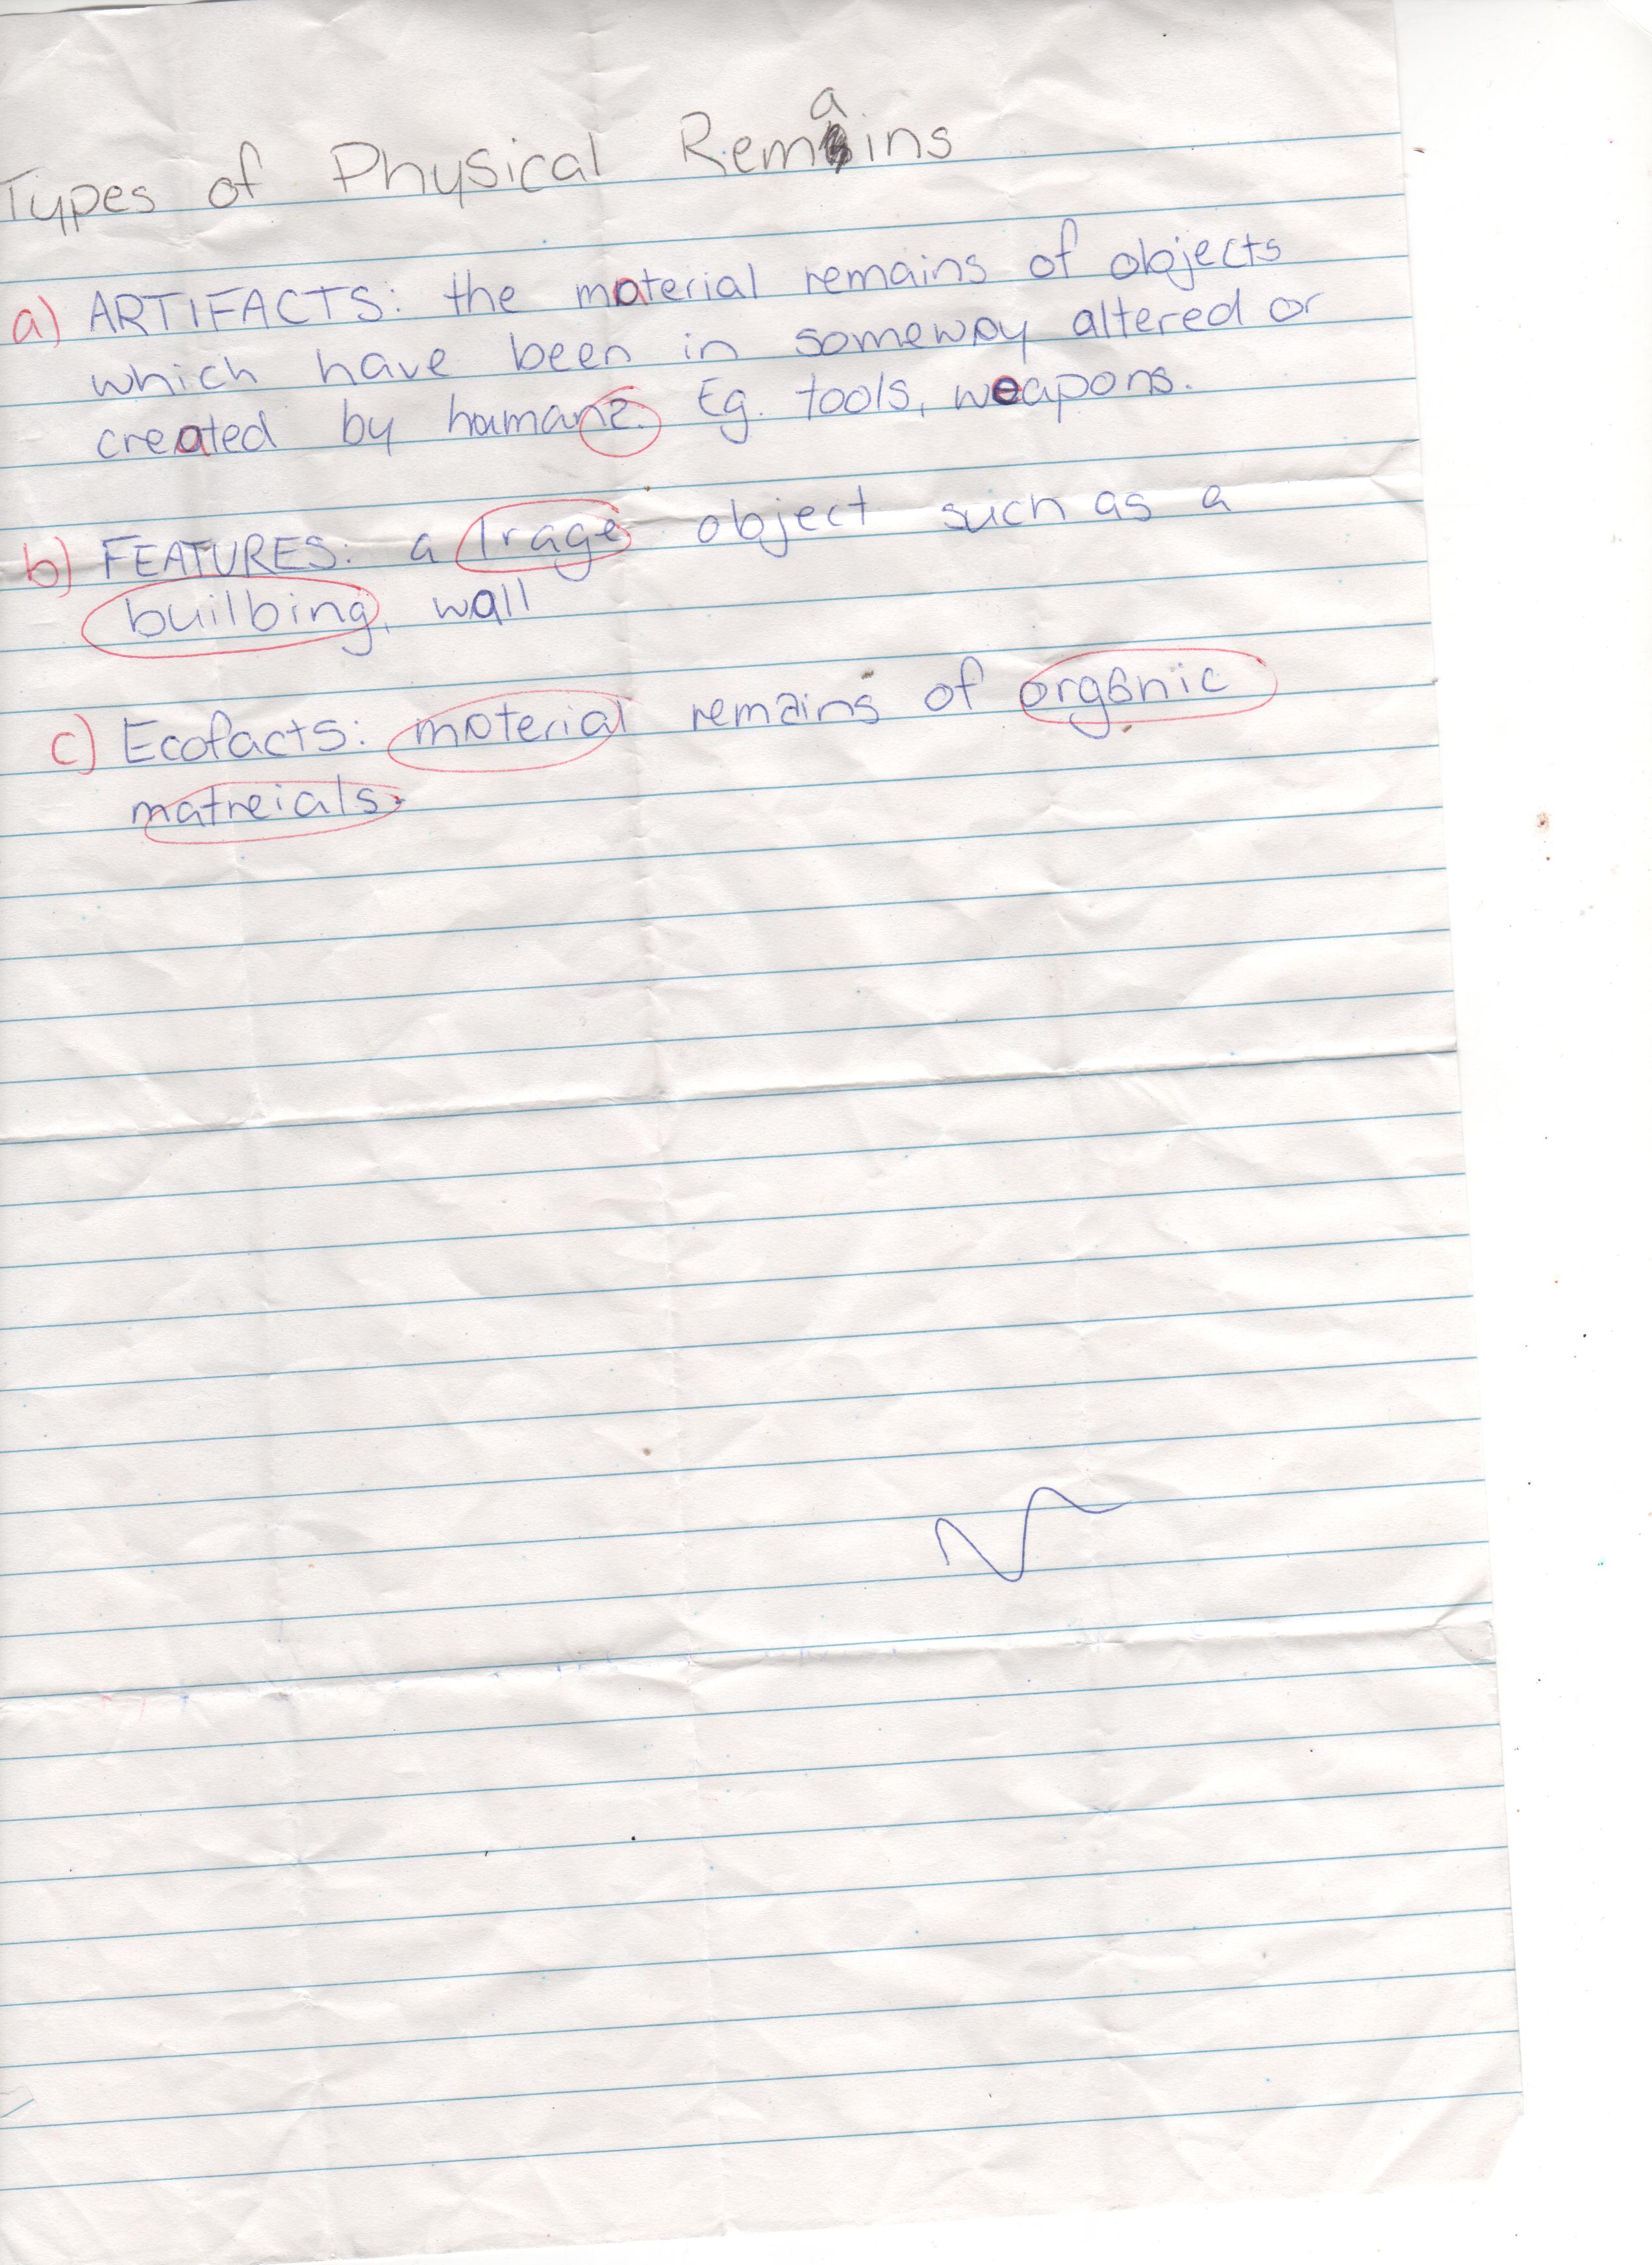 Types of Physical Remains
a) ARTIFACTS: the material remains of objects
which have been in someway altered or
created by human2. Eg. tools, weapons.
b) FEATURES: a lrage object such as a
builbing, wall
c) Ecofacts: material remains of organic
matreials.